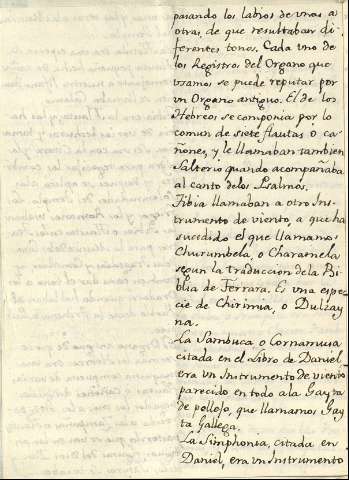 pasando los labios de unas a
otras, de que resultaban di-
ferentes tonos. Cada uno de
los Registros del Organo que
usamos se puede reputar por
un Organo antiguo. El de los
Hebreos se componia por lo
comun de siete flautas o ca-
ñones, y le llamaban tambien
Salterio quando acompañaba
al canto delos Psalmos.
Tibia llamaban a otro Ins-
trumento de viento, a que ha
sucedido el que llamamos
Churumbela, o Charamela
segun la traduccion dela Bi-
blia de Ferrara. Es una espe-
cie de Chirimia, o Dulzay
na.
La Sambuca o Cornamusa
citada en el Libro de Daniel
era un Instrumento de viento
parecido en todo ala Gayta
de pollejo, que llamamos Gay
ta Gallega.
La Simphonia, citada en
Daniel, era un Instrumento